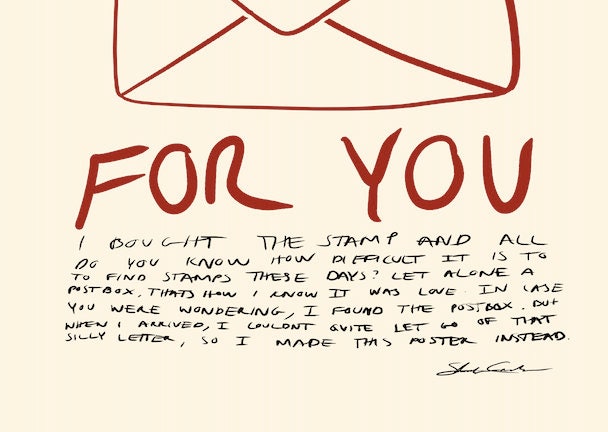 FOR YOU
I BOUGHT THE STAMP AND ALL
DO YOU KNOW HOW DIFFICULT IT IS TO
TO FIND STAMPS THESE DAYS? LET ALONE A
POSTBOX. THATS HOW I KNOW IT WAS LOVE. IN CASE
YOU WERE WONDERING, I FOUND THE POSTBOX. BUT
WHEN I ARRIVED, I COULDNT QUITE LET GO OF THAT
SILLY LETTER, SO I MADE THIS POSTER INSTEAD.